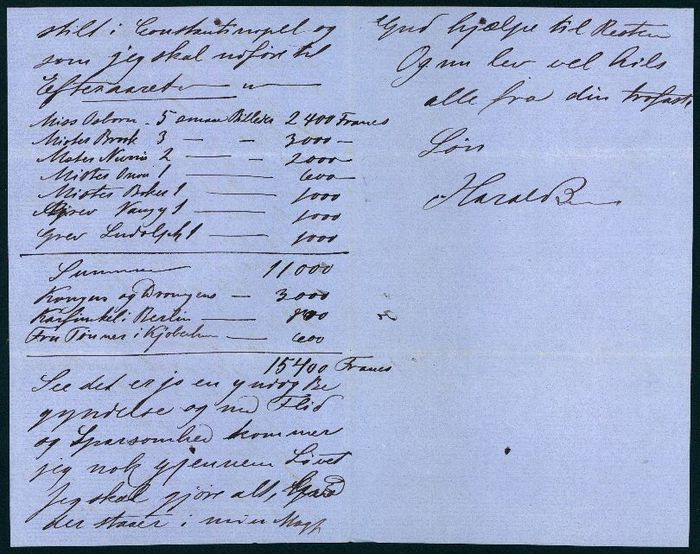 stilt i Constantinopel og
som jeg skal udføre til
Efteraaret
Miss Osborn - 5 smaae Billeder 2400 Francs
Mister Brock 3 — - 3000 -
Mister 2 — 2000 -
Mister 1 — 600 -
Mister Beker 1 — 1000
Grev 1 — 1000
Grev Ludolph 1 — 1000
Summen 11000
Kongens og Dronngens — 3000
Karfunkel i Berlin — 800
Fru Tønner i Kjøbenhavn — 600
15400 Francs
See det er jo en yndig Be
gyndelse og med Flid
og Sparsomhed kommer
jeg nok gjennem Livet
Jeg skal gjøre alt,
der staaer i min Magt
Gud hjælpe til Resten
Og nu lev vel hils
alle fra din trofaste
Søn
Harald